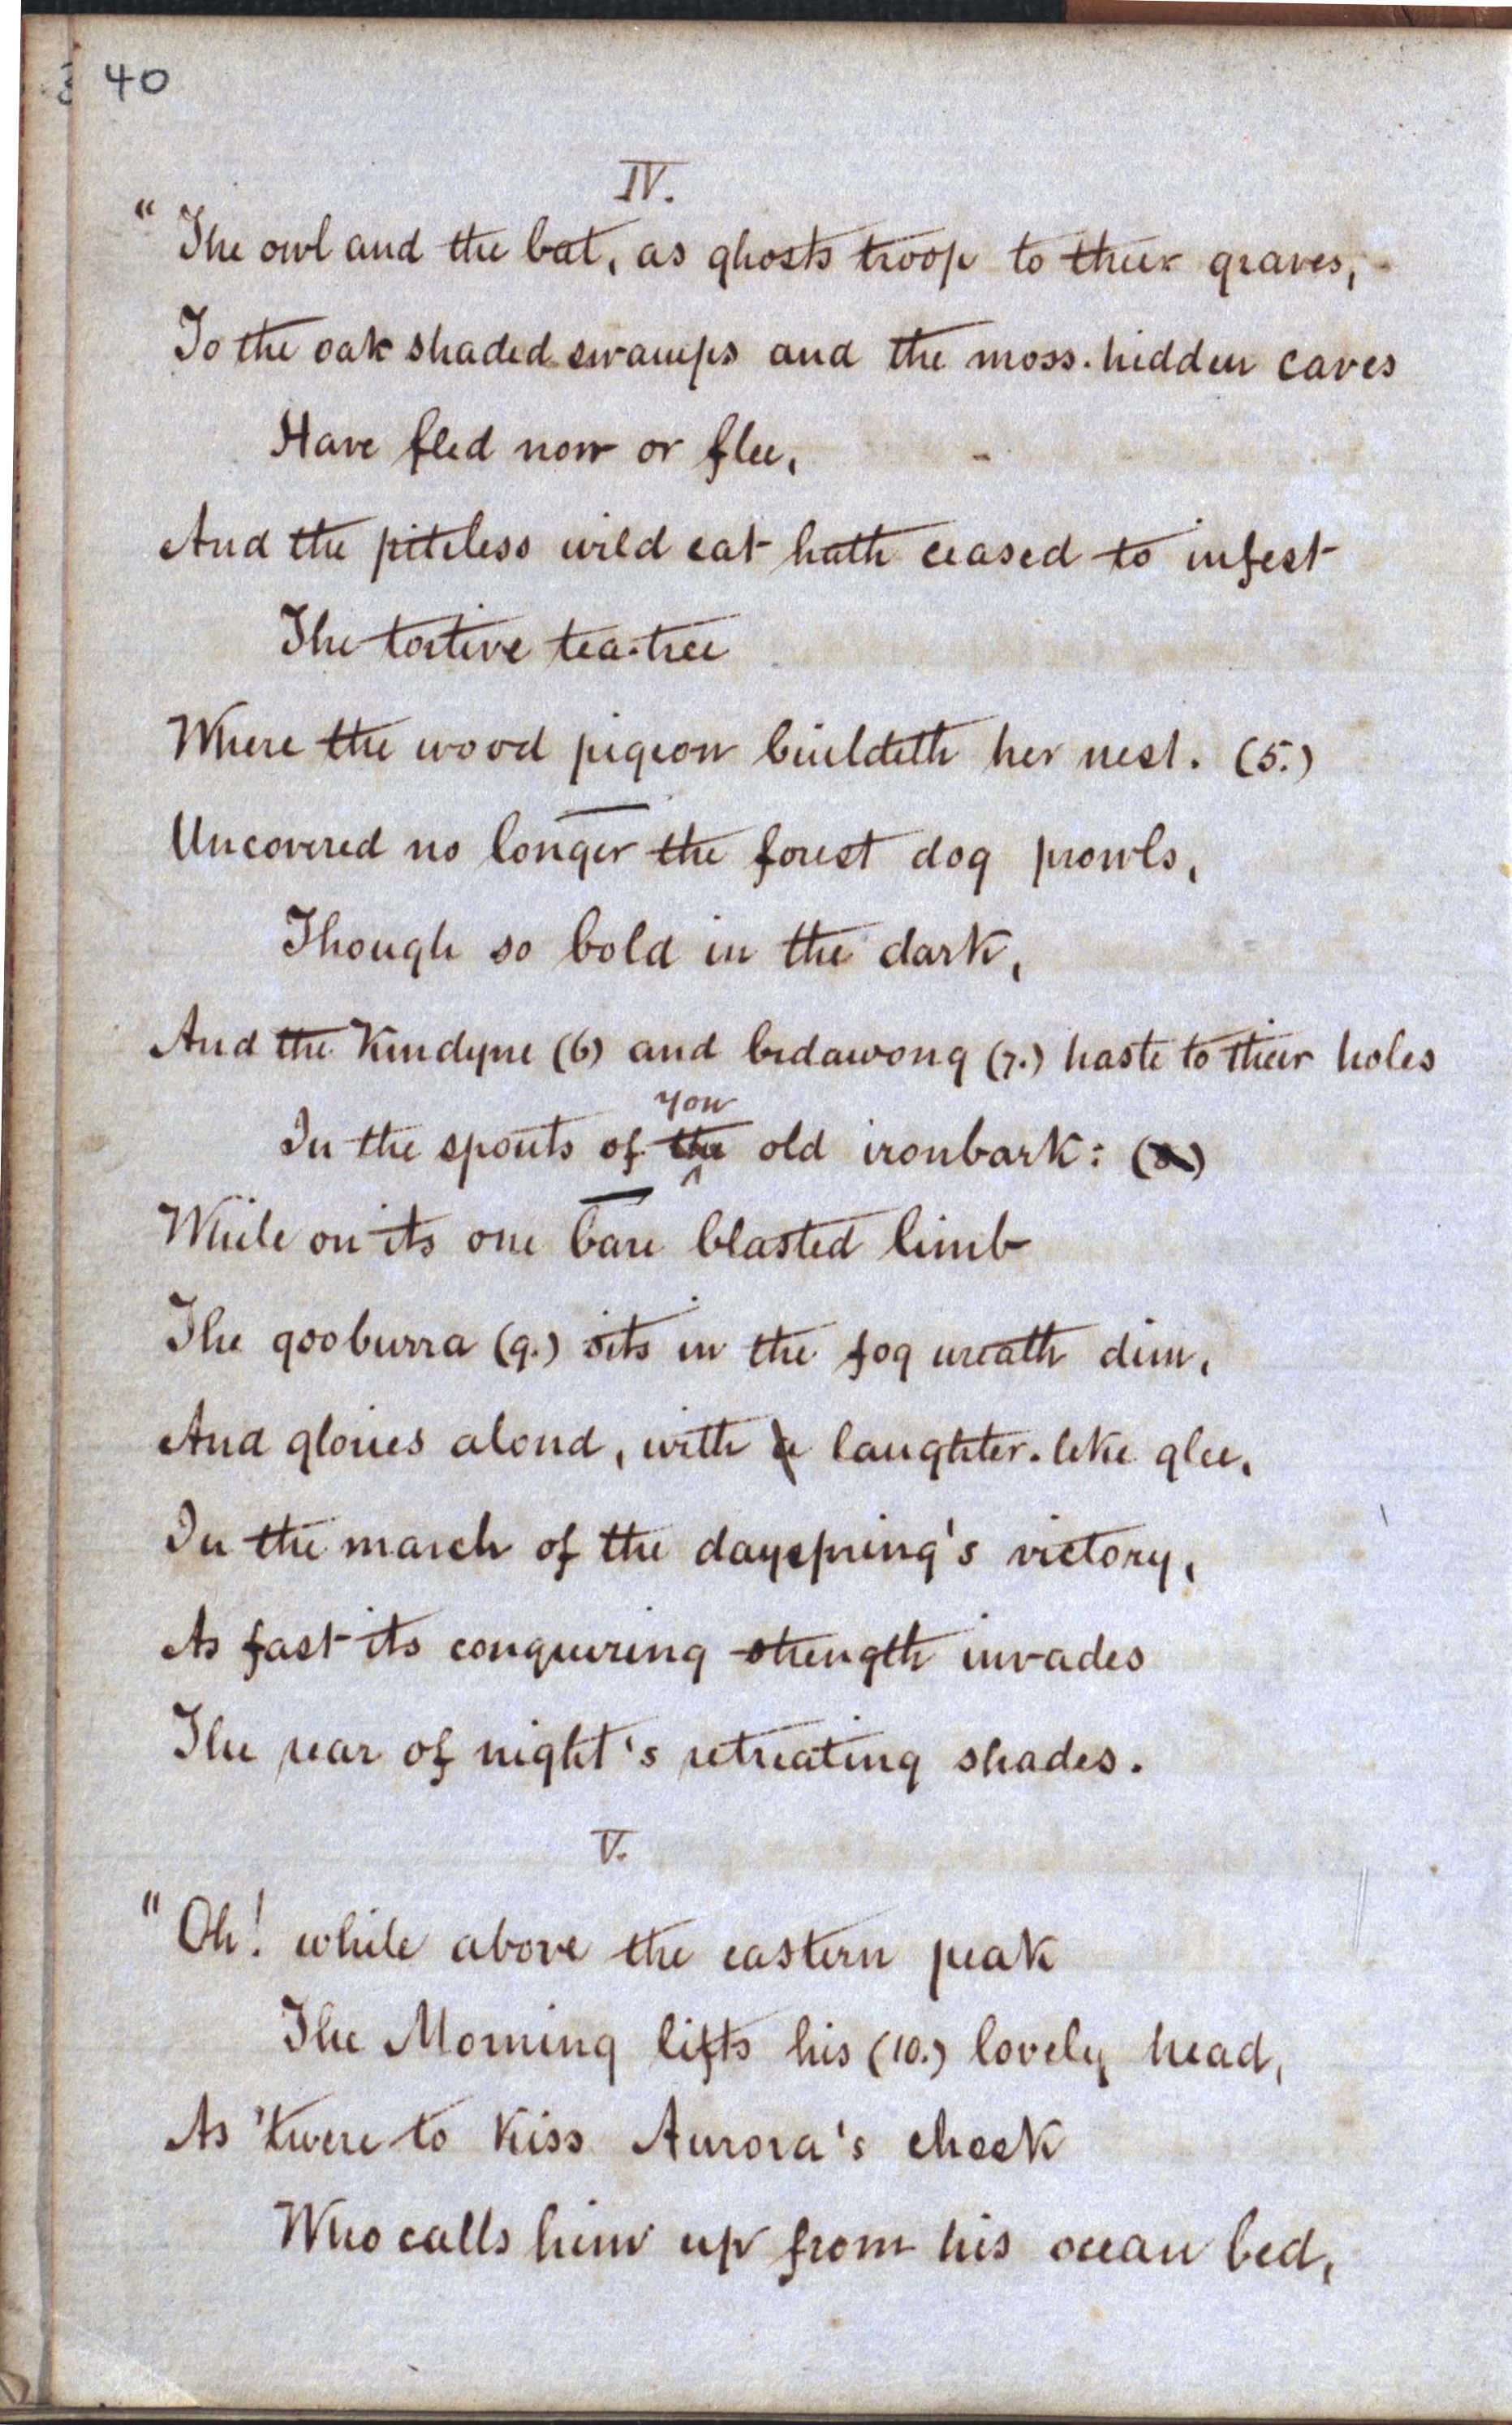 40
IV.
"The owl and the bat, as ghosts troop to their graves,
To the oak shaded swamps and the moss-hidden caves
Have fled now or flee,
And the piteless wild cat hath ceased to infest
The tortive tea-tree
Where the wood pigeon buildeth her nest. (5.)
Uncovered no longer the forest dog prowls,
Though so bold in the dark,
And the Kindyne (6) and bidawong (7.) haste to their holes
yon
In the spouts of the old ironbark: (8)
While on its one bare blasted limb
The gooburra (9.) sits in the fog wreath dim,
And glories aloud, with a laughter-like glee,
In the march of the dayspring's victory,
As fast its conquering strength invades
The rear of night's retreating shades.
V.
"Oh! while above the eastern peak
The Morning lifts his (10.) lovely head,
As 'twere to kiss Aurora's cheek
Who calls him up from his ocean bed,